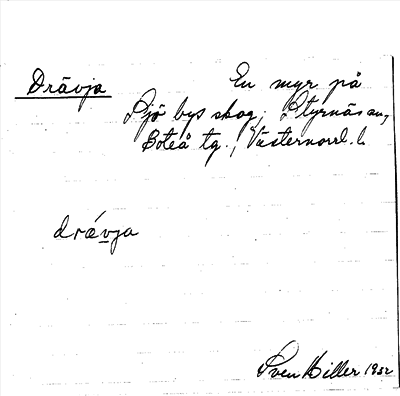 Drävja En myr på
Sjö bys skog, Styrnäs sn,
Boteå tg., Västernorrl. l.
drävja
Sven Hiller 1932